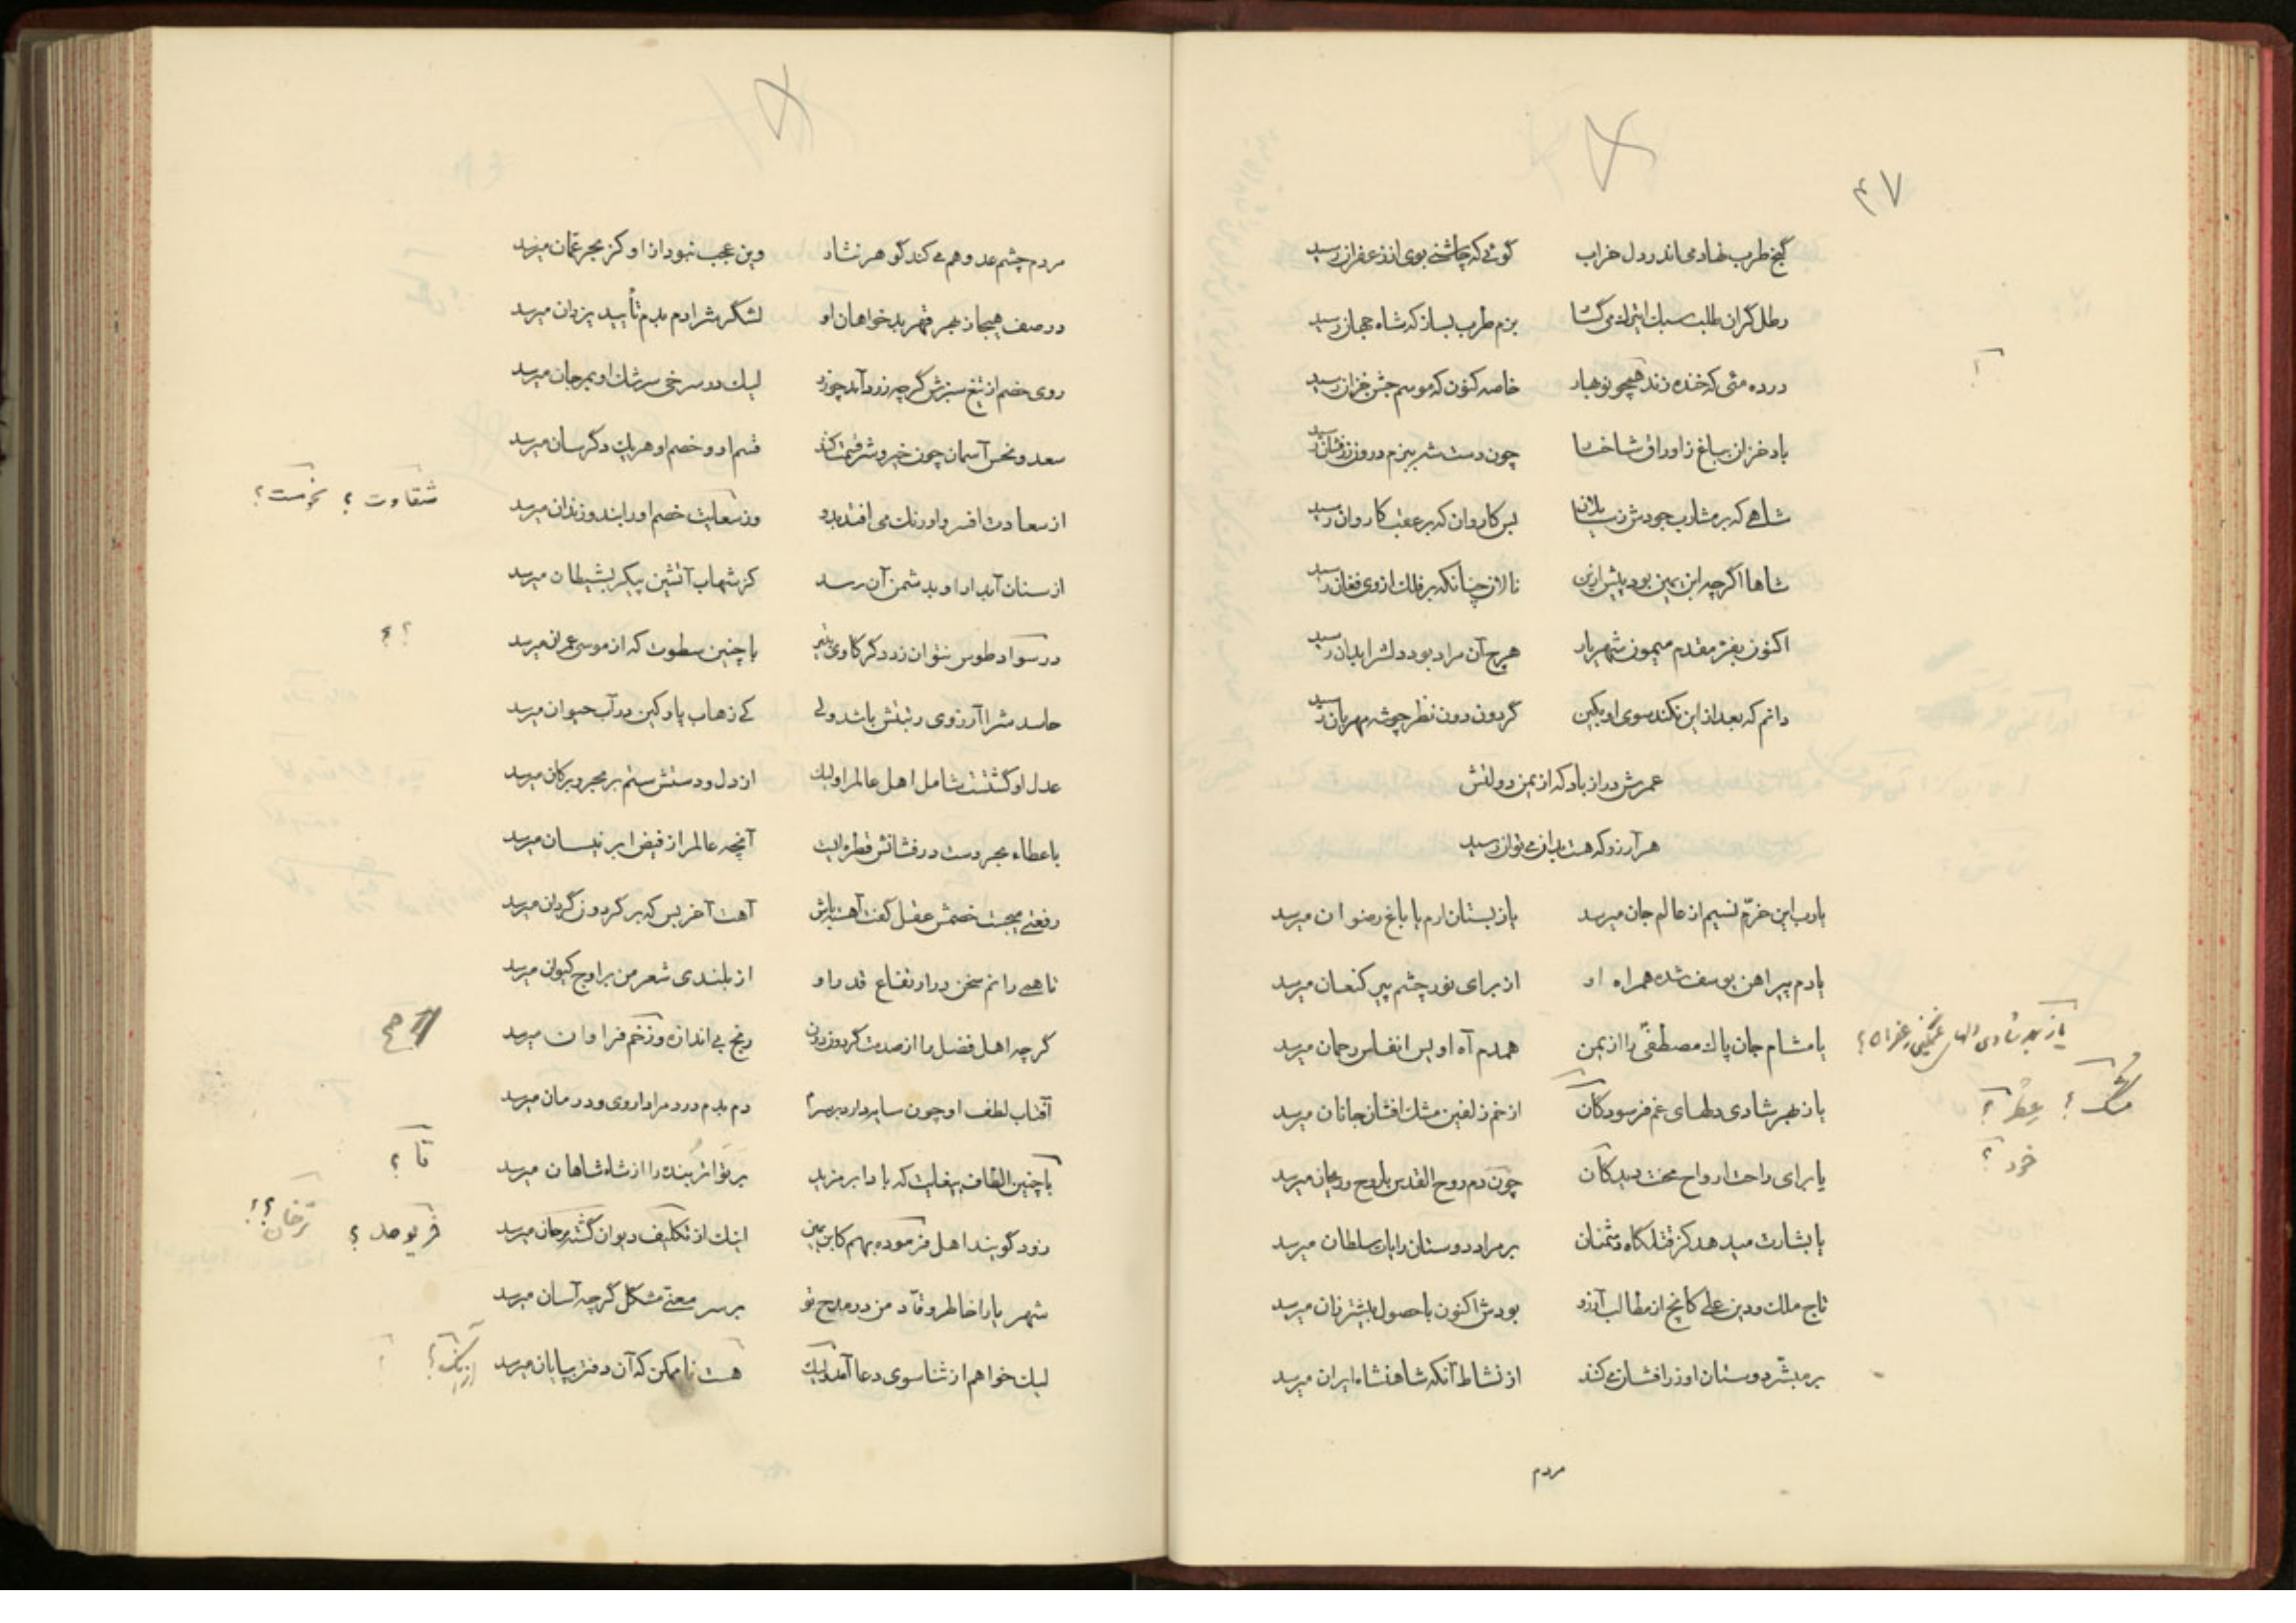 ۴۷
گنج طرب نهاد می اندر دل خراب گوئی که چاشنی بوی از زعفران رسید
رطل گران طلب سبک بزم طرب بساز که شاه جهان رسید
در ده مئی که خنده زند همچو نوبهار خاصه کنون که موسم جشن خزان رسید
باد خزان بباغ ز اوراق شاخها چون دست شه ببزم درون زرفشان رسید
شاهی که بر مشارب جودش ز بس کاروان که بر عقب کاروان رسید
شاها اگرچه ابن یمین بود پیش ازین نالان چنانکه بر فلک از وی فغان رسید
اکنون بفر مقدم میمون شهریار هرچ آن مراد بود دلش را بدان رسید
دانم که بعد ازین نکند سوی او بکین گردون دون نظر چو شه مهربان رسید
عمرش دراز باد که از یمن دولتش
هر آرزو که هست بدان می توان رسید
یارب این خرّم نسیم از عالم جان میرسد یا ز بستان ارم یا باغ رضوان میرسد
یا دم پیراهن یوسف شده همراه او از برای نور چشم پیر کنعان میرسد
یا مشام جان پاک مصطفی را از یمن همدم آه اویس انفاس رحمان میرسد
یا ز بهر شادی دلهای غم فرسودگان از خم زلفین مشک افشان جانان میرسد
یا برای راحت ارواح محنت دیدگان چون دم روح القدس با روح و ریحان میرسد
یا بشارت میدهد کز قتلگاه دشمنان بر مراد دوستان رایات سلطان میرسد
تاج ملک و دین علی کانچ از مطالب آرزو بودش اکنون با حصول بیشتر زان میرسد
بر مبشّر دوستان او زر افشان می کند از نشاط آنکه شاهنشاه ایران میرسد
مردم
مشک ؟ عطر ؟
خرد ؟
مردم چشم عدو هم می کند گوهر نثار وین عجب نبود ازاو کز بحر عمّان میرسد
در صف هیجا ز بهر قهر بدخواهان او لشگرش را دم بدم تأیید یزدان میرسد
روی خصم از تیغ سبزش گرچه زرد آمد چو زر لیک در سرخی سرشک او بمرجان میرسد
سعد و نحس آسمان چون خیر و شر قسمت کند قسم او و خصم او هر یک دگرسان میرسد
از سعادت افسر و اورنگ می افتد بدو وز خصم او را بند و زندان میرسد
شقاوت ؟ نحوست ؟
از سنان آبدار او بدشمن آن رسد کز شهاب آتشین پیکر بشیطان میرسد
در سواد طوس نتوان زد دگر با چنین سطوت که از موسی عمران میرسد
؟ ؟
حاسدش را آرزوی رتبتش باشد ولی کی ذهاب پارگین در آب حیوان میرسد
عدل او گشتست شامل اهل عالم را ولیک از دل و دستش ستم بر بحر و بر کان میرسد
با عطاء بحر دست درفشانش قطره ایست آنچه عالم را ز فیض ابر نیسان میرسد
رفعتی میجست خصمش عقل گفت آهسته باش آهت آخر بس که بر گردون گردان میرسد
تا همی رانم سخن در ارتفاع قدر او از بلندی شعر من بر اوج کیوان میرسد
گرچه اهل فضل را از صدمت گردون دون رنج بی اندازه و زخم فراوان میرسد
آفتاب لطف او چون سایه دارد بر سرم دم بدم درد مرا داروی و درمان میرسد
با چنین الطاف بیغایت که بادا بر مزید بر تواتر بنده را از شاه شاهان میرسد
تا ؟
زود گویند اهل فرمود بهم کابن یمین اینک از تکلیف دیوان گشته میرسد
ترخان ؟!
شهریارا خاطر وقّاد من در مدح تو بر سر معنی مشکل گرچه آسان میرسد
لیک خواهم از ثنا سوی دعا آمد ولیک هست ناممکن که آن دفتر بپایان میرسد